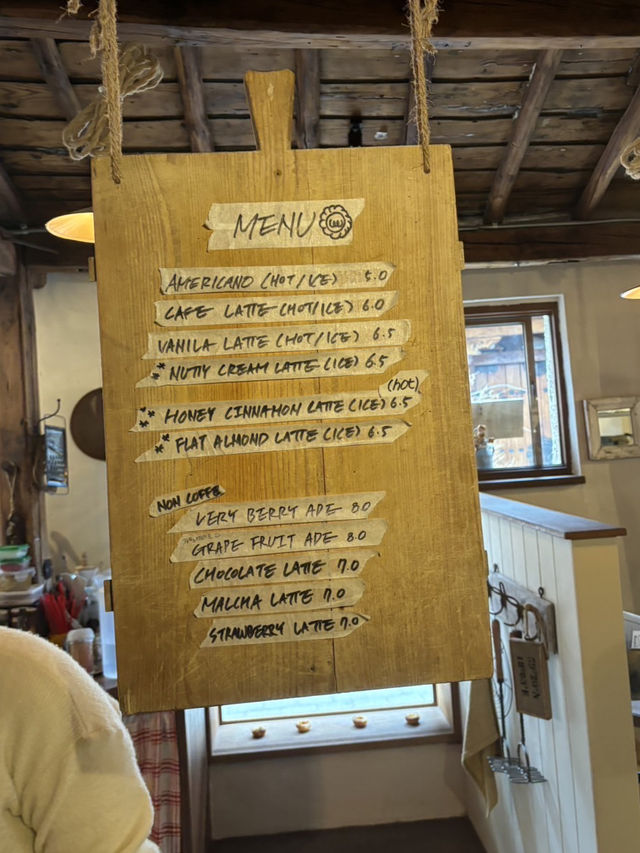 MENU
AMERICANO (HOT/ICE) 5.0
CAFE LATTE (HOT/ICE) 6.0
VANILA LATTE (HOT/ICE) 6.5
** NUTTY CREAM LATTE (ICE) 6.5
(hot)
** HONEY CINNAMON LATTE (ICE) 6.5
** FLAT ALMOND LATTE (ICE) 6.5
NON COFFE
VERY BERRY ADE 8.0
GRAPE FRUIT ADE 8.0
CHOCOLATE LATTE 7.0
MALCHA LATTE 7.0
STRAWBERRY LATTE 7.0